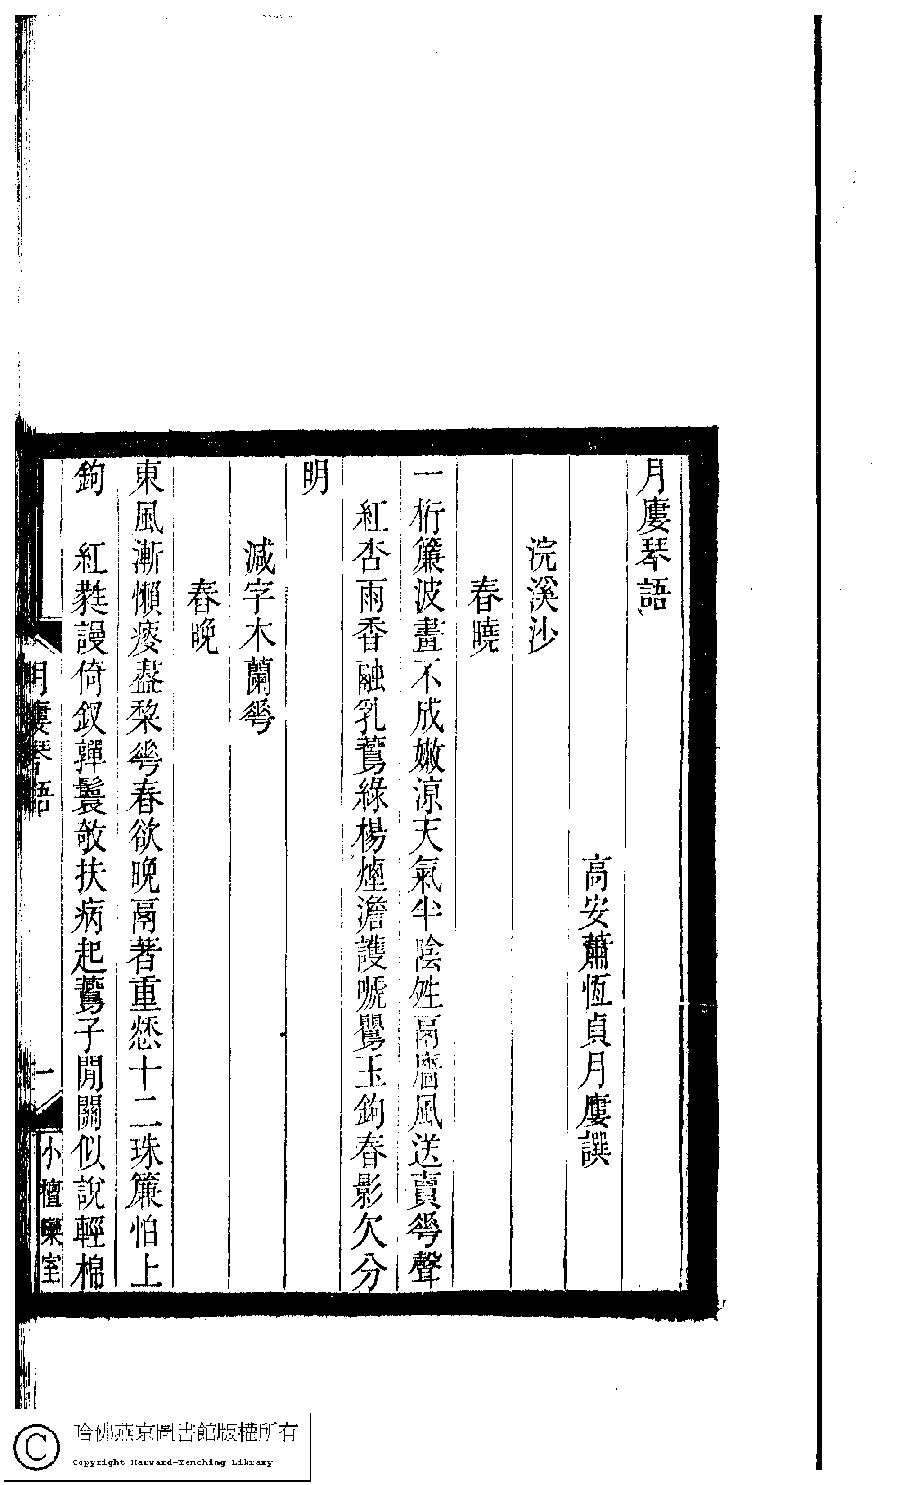 月廔琴語
高安蕭恆貞月廔譔
浣溪沙
春曉
一桁簾波畫不成嫩涼天氣半陰姓鬲牆風送賣蕐聲
紅杏雨香融乳鷰綠楊煙澹護嗁鸎玉鉤春影欠分
明
減字木蘭蕐
春晚
東風漸懶瘦盡棃蕐春欲晚鬲著重簾十二珠簾怕上
鉤　紅蕤謾倚釵嚲鬟欹扶病起鷰子閒關似說輕棉
月廔琴語
一
小檀欒室
哈佛燕京圖書館版權所有
Copyright Harvard-Yenching Library